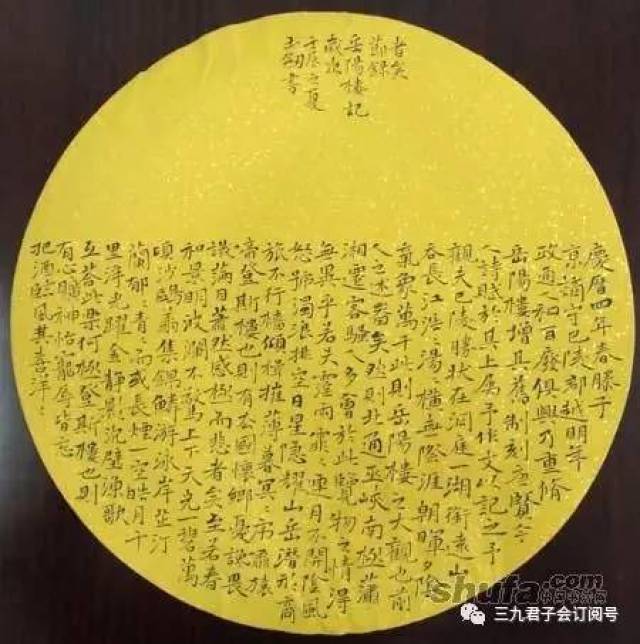 慶曆四年春滕子
京謫守巴陵郡越明年
政通人和百廢俱興乃重脩
岳陽樓增其舊制刻唐賢今
人詩賦於其上屬予作文以記之予
觀夫巴陵勝狀在洞庭一湖銜遠山
吞長江浩々湯々橫無際涯朝暉夕陰
氣象萬千此則岳陽樓之大觀也前
人之述備矣然則北通巫峽南極瀟
湘遷客騷人多會於此覽物之情得
無異乎若夫霪雨霏々連月不開陰風
怒號濁浪排空日星隱耀山岳潛形商
旅不行檣傾楫摧薄暮冥々虎嘯猿
啼登斯樓也則有去國懷鄉憂讒畏
譏滿目蕭然感極而悲者矣至若春
和景明波瀾不驚上下天光一碧萬
頃沙鷗翔集錦鱗游泳岸芷汀
蘭郁々青々而或長煙一空皓月千
里浮光躍金靜影沉璧漁歌
互答此樂何極登斯樓也則
有心曠神怡寵辱皆忘
把酒臨風其喜洋々
者矣
節錄
岳陽樓記
歲次
壬辰之夏
書
shufa.com
中国书法网
三九君子会订阅号